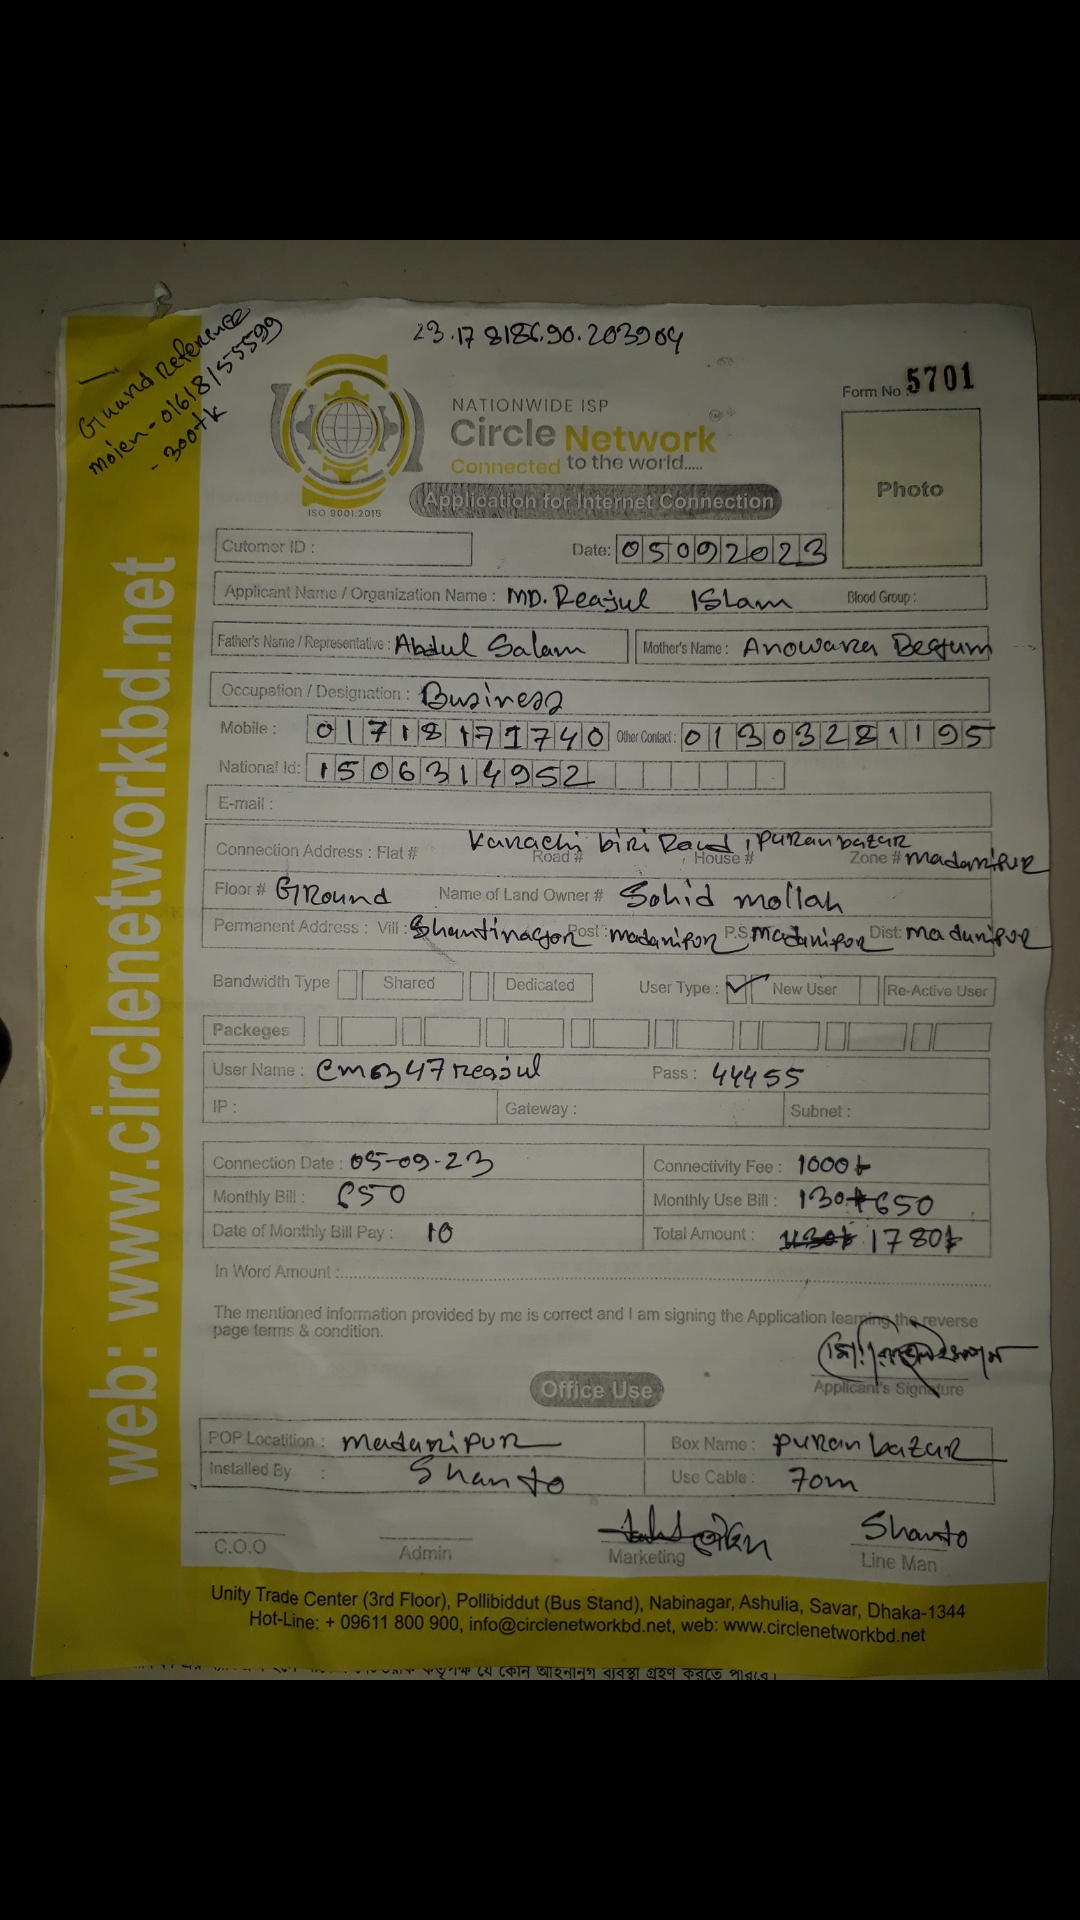 23.17 8186.90.203904
Guard Reference
moien-01618155599
- 300tk
Form No 5701
NATIONWIDE ISP
Circle Network
Connected to the world.....
ISO 9001:2015
Application for Internet Connection
Photo
Cutomer ID :
Date: 05092023
Applicant Name / Organization Name : MD. Reajul Islam Blood Group :
Father's Name / Representative : Abdul Salam Mother's Name : Anowara Begum
Occupation / Designation : Business
Mobile : 01718171740 Other Contact : 01303281195
National Id: 1506314952
E-mail :
Karachi biri Road, Puran bazar
Connection Address : Flat # Road # House # Zone # madaripur
Floor # Ground Name of Land Owner # Sohid mollah
Permanent Address : Vill : Shantinagor Post : madaripor P.S. madaripor Dist: madaripur
Bandwidth Type Shared Dedicated User Type : ✓ New User Re-Active User
Packeges
User Name : cm6347reajul Pass : 44455
IP : Gateway : Subnet :
Connection Date : 05-09-23 Connectivity Fee : 1000৳
Monthly Bill : 650 Monthly Use Bill : 130+650
Date of Monthly Bill Pay : 10 Total Amount : 1130৳ 1780৳
In Word Amount :
The mentioned information provided by me is correct and I am signing the Application learning the reverse
page terms & condition.
Applicant's Signature
Office Use
POP Locatition : madaripur Box Name : puran bazar
Installed By : Shanto Use Cable : 70m
Shanto
C.O.O Admin Marketing Line Man
Unity Trade Center (3rd Floor), Pollibiddut (Bus Stand), Nabinagar, Ashulia, Savar, Dhaka-1344
Hot-Line: + 09611 800 900, info@circlenetworkbd.net, web: www.circlenetworkbd.net
যে কোন আইনানুগ ব্যবস্থা গ্রহণ করতে পারবে।
web: www.circlenetworkbd.net